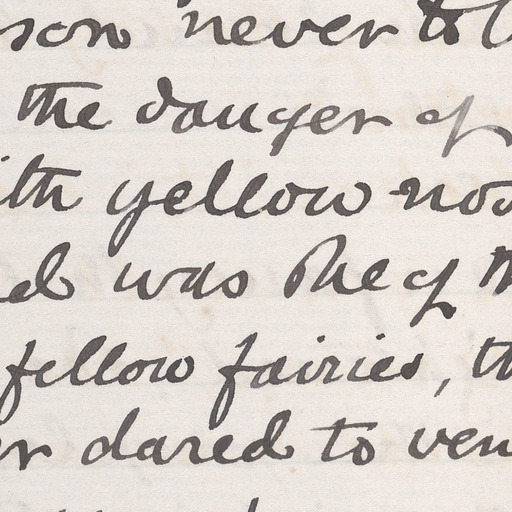 son never to
the danger of
ith yellow nos
ed was she of th
fellow fairies, th
er dared to ven